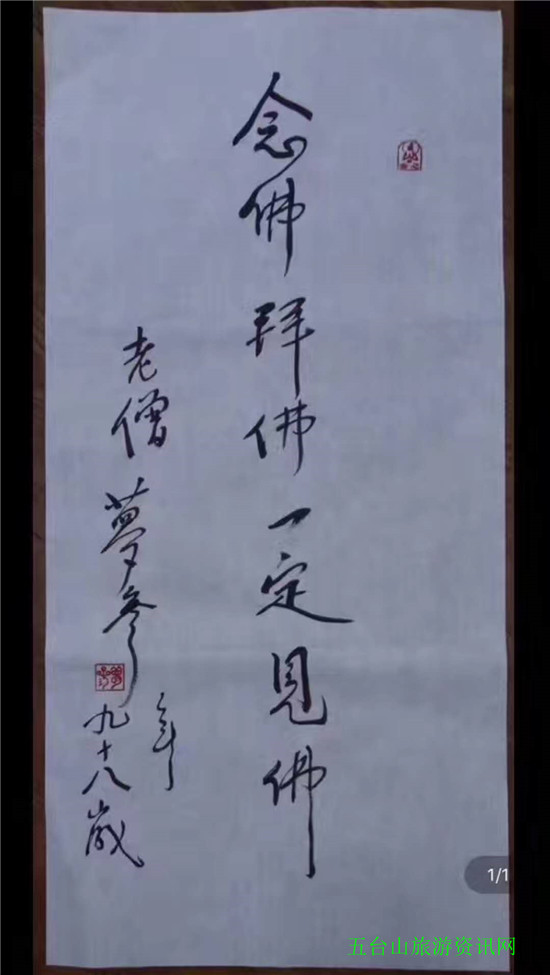 念佛拜佛一定見佛
老僧夢参
年九十八歲
1/1
五台山旅游资讯网